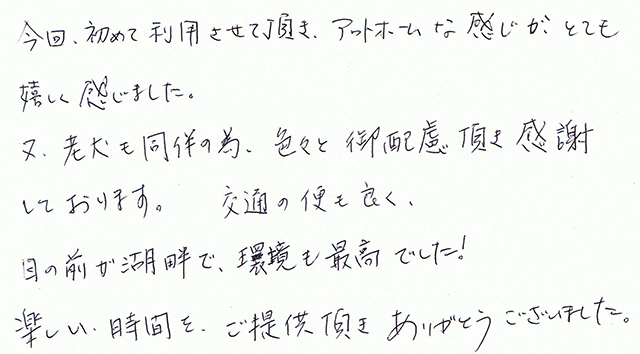 今回、初めて利用させて頂き、アットホームな感じが、とても
嬉しく感じました。
又、老犬も同伴の為、色々と御配慮頂き感謝
しております。　交通の便も良く、
目の前が湖畔で、環境も最高でした!
楽しい、時間を、ご提供頂きありがとうございました。